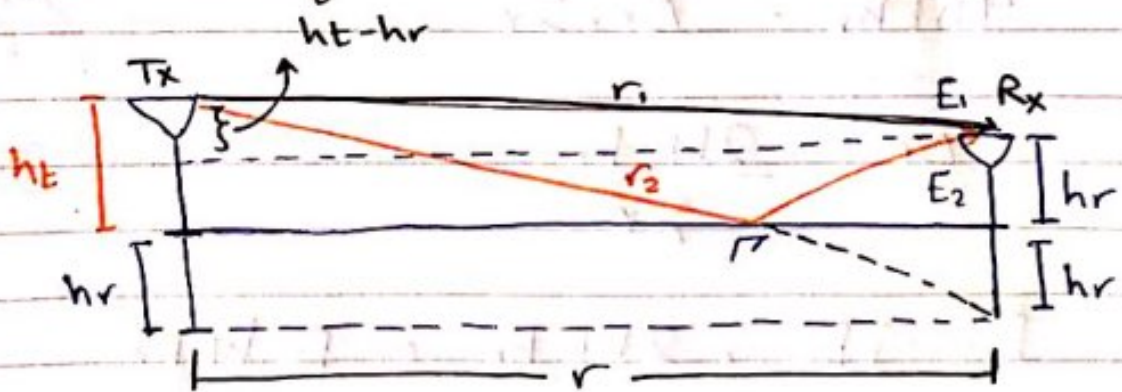 ht-hr
Tx
r₁
E₁ Rx
ht
r₂
E₂
hr
Γ
hr
hr
r